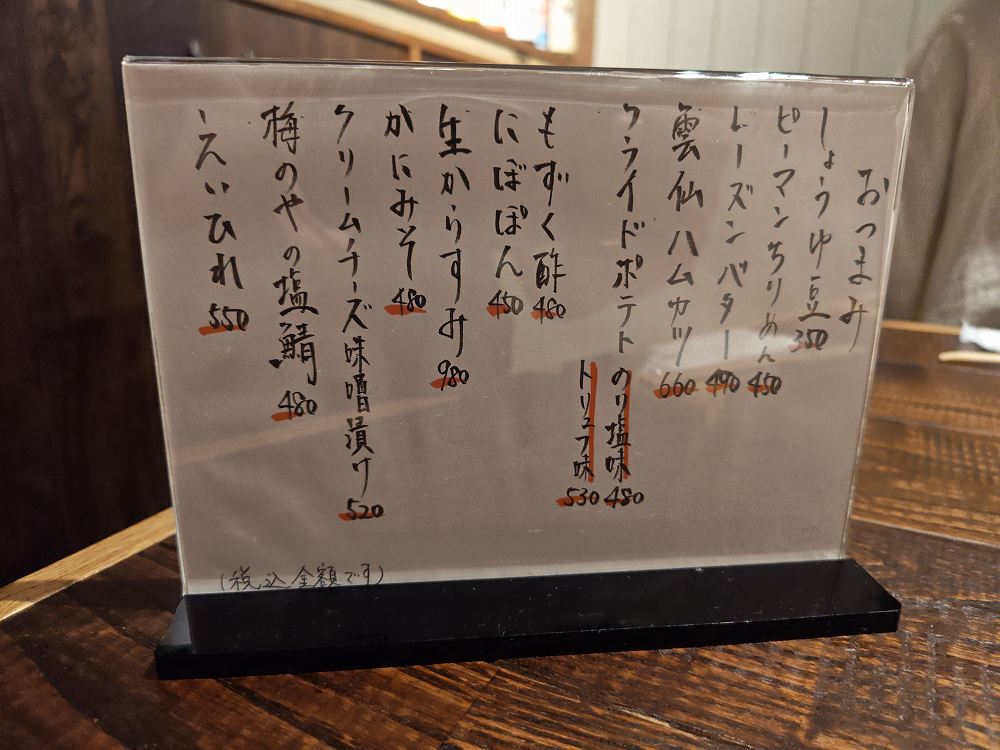 おつまみ
しょうゆ豆 350
ピーマンちりめん 450
レーズンバター 490
雲仙ハムカツ 660
フライドポテト のり塩味 480
トリュフ味 530
もずく酢 480
にぼぽん 450
生からすみ 980
かにみそ 480
クリームチーズ味噌漬け 520
梅のやの塩鯖 480
えいひれ 550
(税込金額です)